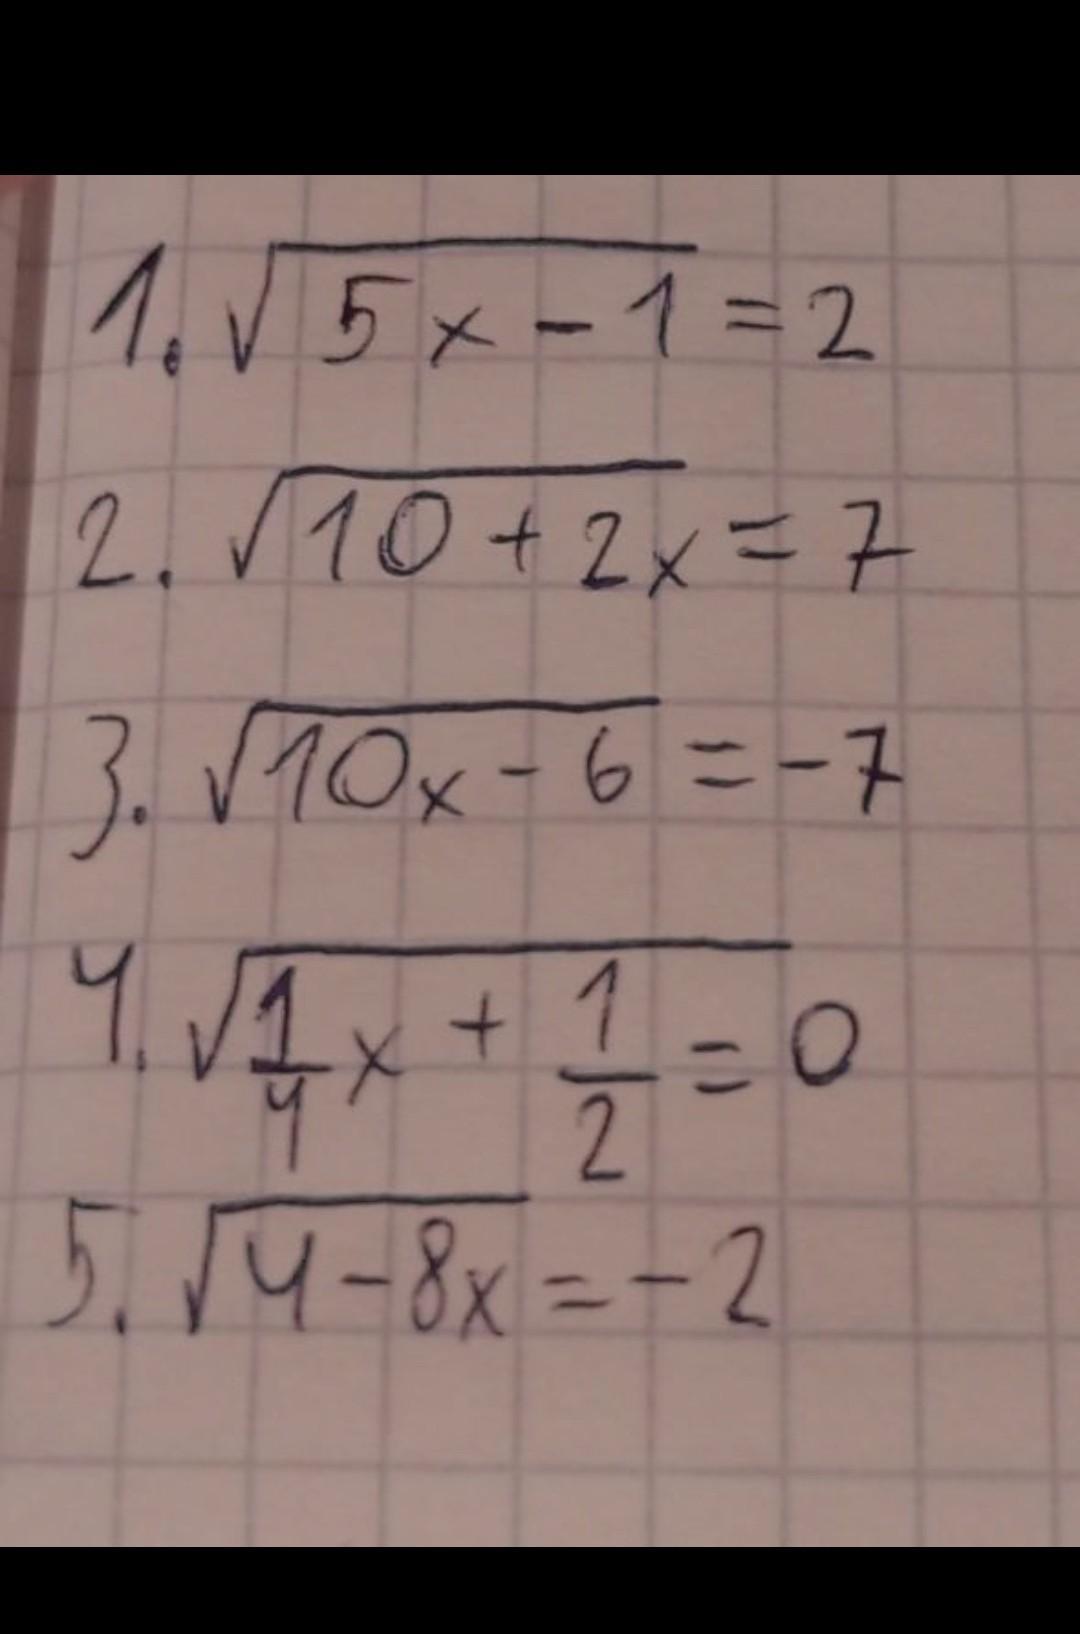 1. √(5x - 1) = 2
2. √(10 + 2x) = 7
3. √(10x - 6) = -7
4. √(1/4 x + 1/2) = 0
5. √(4 - 8x) = -2